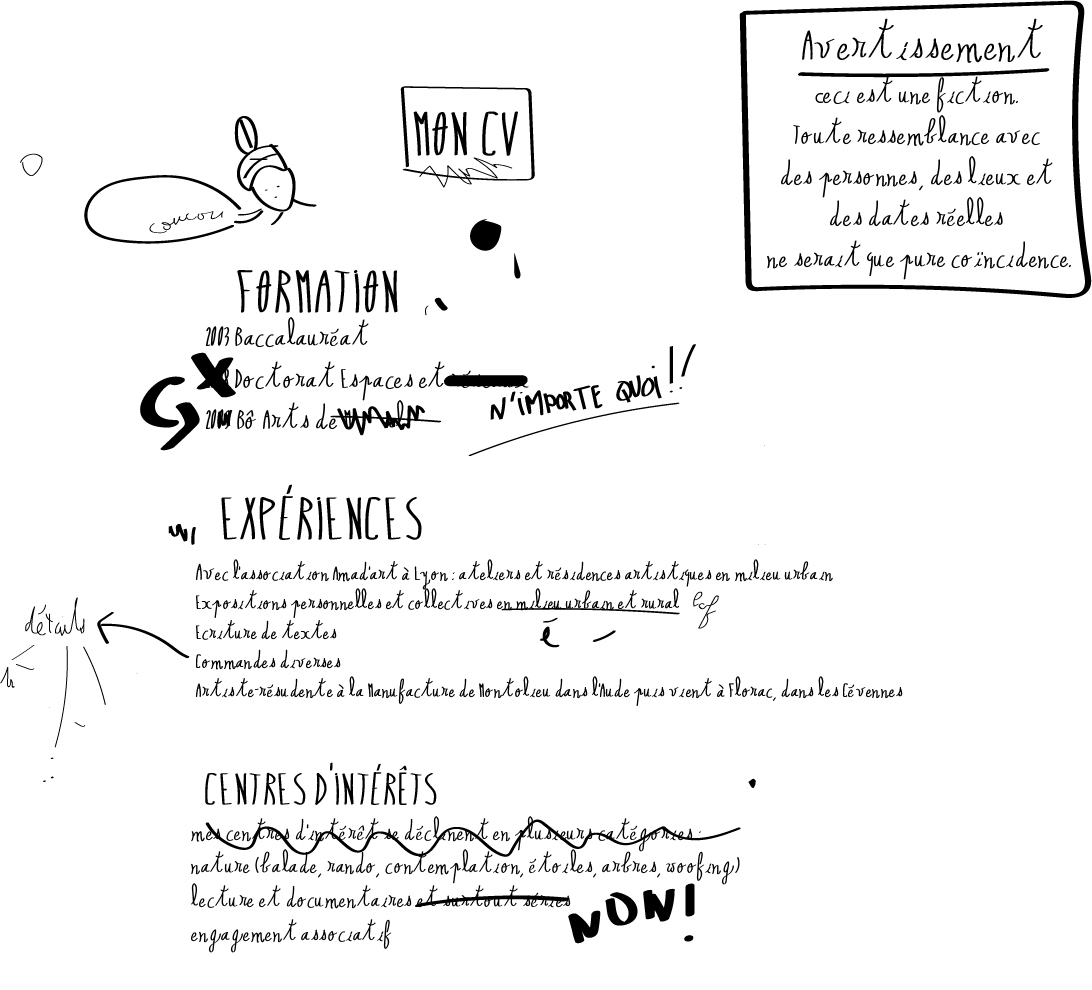 Avertissement
ceci est une fiction.
Toute ressemblance avec
des personnes, des lieux et
des dates réelles
ne serait que pure coïncidence.
MON CV
coucou
FORMATION
2003 Baccalauréat
Doctorat Espaces et
Bô Arts de
N'IMPORTE QUOI!!
EXPÉRIENCES
Avec l'association Amad'art à Lyon : ateliers et résidences artistiques en milieu urbain
Expositions personnelles et collectives en milieu urbain et rural
é
Ecriture de textes
détails
Commandes diverses
Artiste-résudente à la Manufacture de Montolieu dans l'Aude puis vient à Florac, dans les Cévennes
CENTRES D'INTÉRÊTS
mes centres d'intérêt se déclinent en plusieurs catégories:
nature (balade, rando, contemplation, étoiles, arbres, woofing)
lecture et documentaires et surtout séries
NON!
engagement associatif